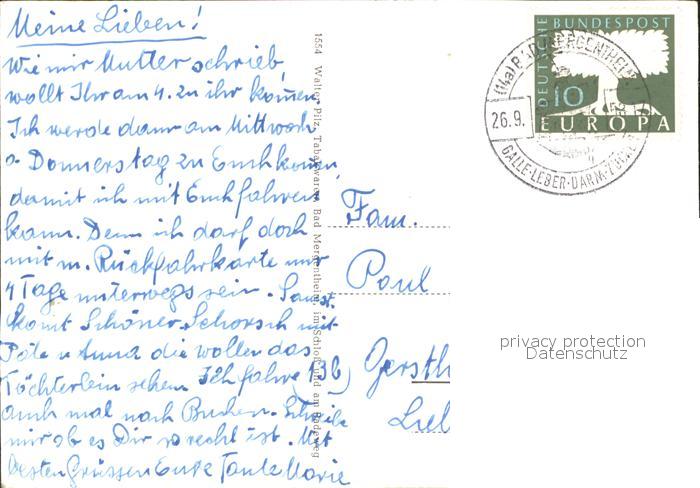 Meine Lieben!
Wie mir Mutter schrieb,
wollt Ihr am 4. zu ihr kommen.
Ich werde dann am Mittwoch
o. Donnerstag zu Euch kommen,
damit ich mit Euch fahren
kann. Denn ich darf doch
mit m. Rückfahrkarte nur
4 Tage unterwegs sein. Sonst
kommt Schöner Schorsch mit
u Anna die wollen das
Töchterlein sehen. Ich fahre
auch mal nach Buchen. Schreibe
mir ob es Dir so recht ist. Mit
besten Grüssen Eure Tante Marie
1554 Walter Pilz, Tabakwaren, Bad Mergentheim, im Schloß und am Badeweg
Fam.
Paul
(13b) Gersth
DEUTSCHE BUNDESPOST
10
EUROPA
(14a) BAD MERGENTHEIM
26.9.
GALLE-LEBER-DARM-ZUCKER
privacy protection
Datenschutz